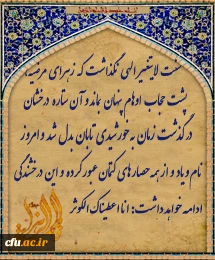 سنت لایتغیر الهی نگذاشت که زهرای مرضیه
پشت حجاب اوهام پنهان بماند و آن ستاره درخشان
در گذشت زمان به خورشیدی تابان بدل شد و امروز
نام و یاد او از همه حصارهای کتمان عبور کرده و این درخشندگی
ادامه خواهد داشت: انا اعطیناک الکوثر
cfu.ac.ir